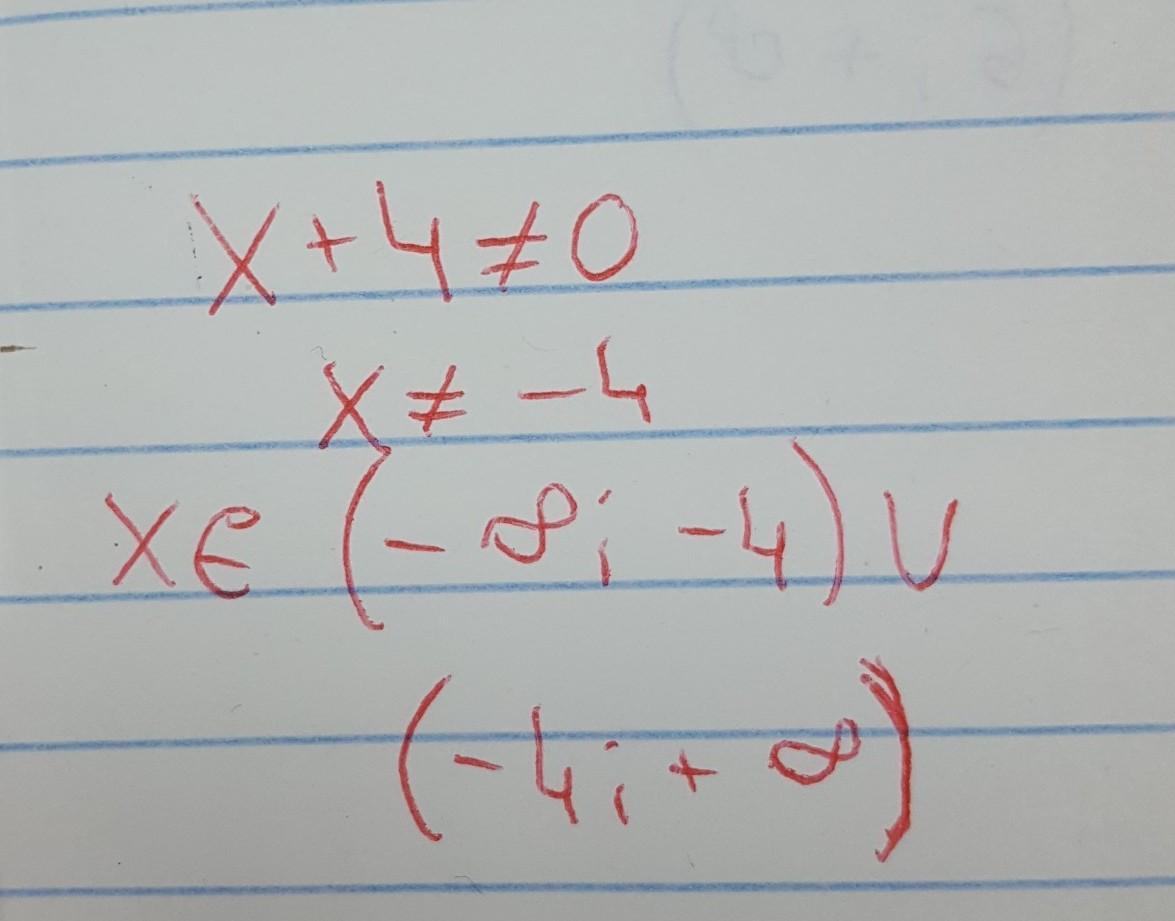 x + 4 ≠ 0
x ≠ -4
x ∈ (-∞; -4) ∪
(-4; +∞)